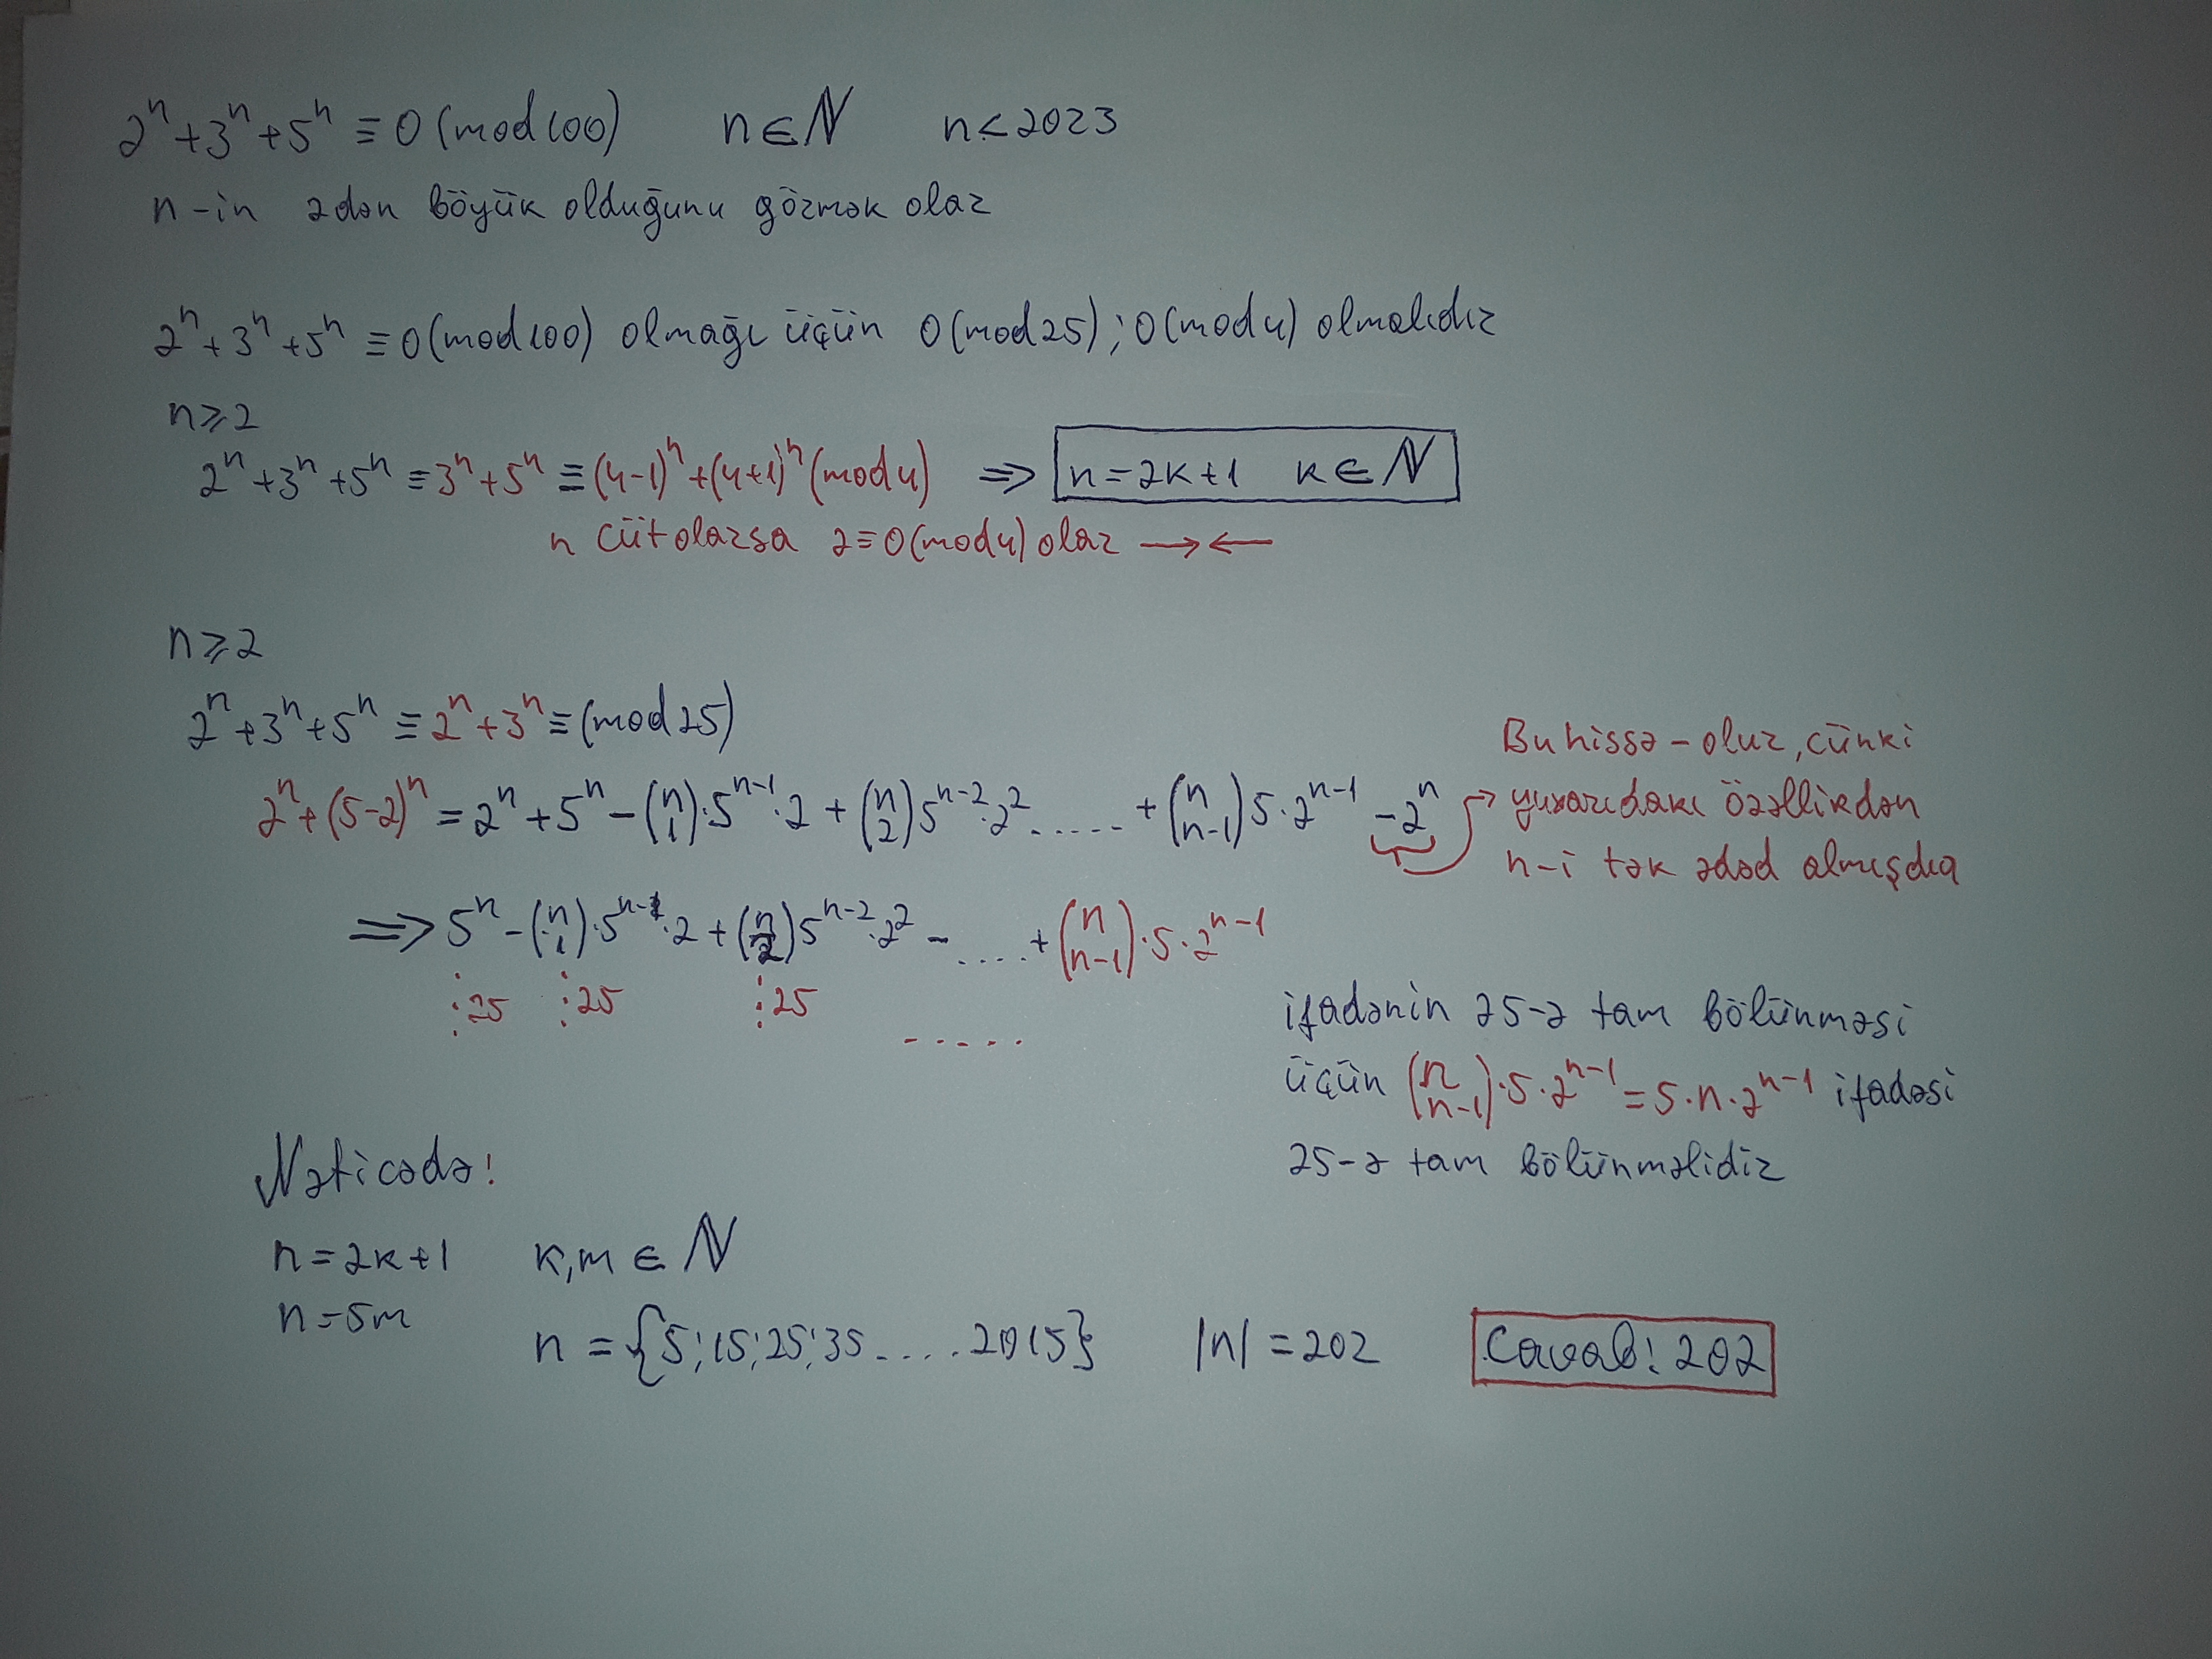 2ⁿ+3ⁿ+5ⁿ ≡ 0 (mod 100) n ∈ ℕ n < 2023
n-in 2dən böyük olduğunu görmək olar
2ⁿ+3ⁿ+5ⁿ ≡ 0 (mod 100) olmağı üçün 0 (mod 25) ; 0 (mod 4) olmalıdır
n ⩾ 2
2ⁿ+3ⁿ+5ⁿ ≡ 3ⁿ+5ⁿ ≡ (4-1)ⁿ+(4+1)ⁿ (mod 4) ⇒ n = 2k+1 k ∈ ℕ
n cüt olarsa 2 ≡ 0 (mod 4) olar →←
n ⩾ 2
2ⁿ+3ⁿ+5ⁿ ≡ 2ⁿ+3ⁿ ≡ (mod 25)
2ⁿ+(5-2)ⁿ = 2ⁿ+5ⁿ-(n 1)·5ⁿ⁻¹·2+(n 2)5ⁿ⁻²·2².....+(n n-1)5·2ⁿ⁻¹-2ⁿ
Bu hissə - olur, çünki
yuxarıdakı özəllikdən
n-i tək ədəd almışdıq
⇒ 5ⁿ-(n 1)·5ⁿ⁻¹·2+(n 2)5ⁿ⁻²·2²-.....+(n n-1)·5·2ⁿ⁻¹
⋮25 ⋮25 ⋮25 .....
ifadənin 25-ə tam bölünməsi
üçün (n n-1)·5·2ⁿ⁻¹ = 5·n·2ⁿ⁻¹ ifadəsi
25-ə tam bölünməlidir
Nəticədə!
n = 2k+1 k,m ∈ ℕ
n = 5m
n = {5; 15; 25; 35 .... 2015} |n| = 202 Cavab: 202